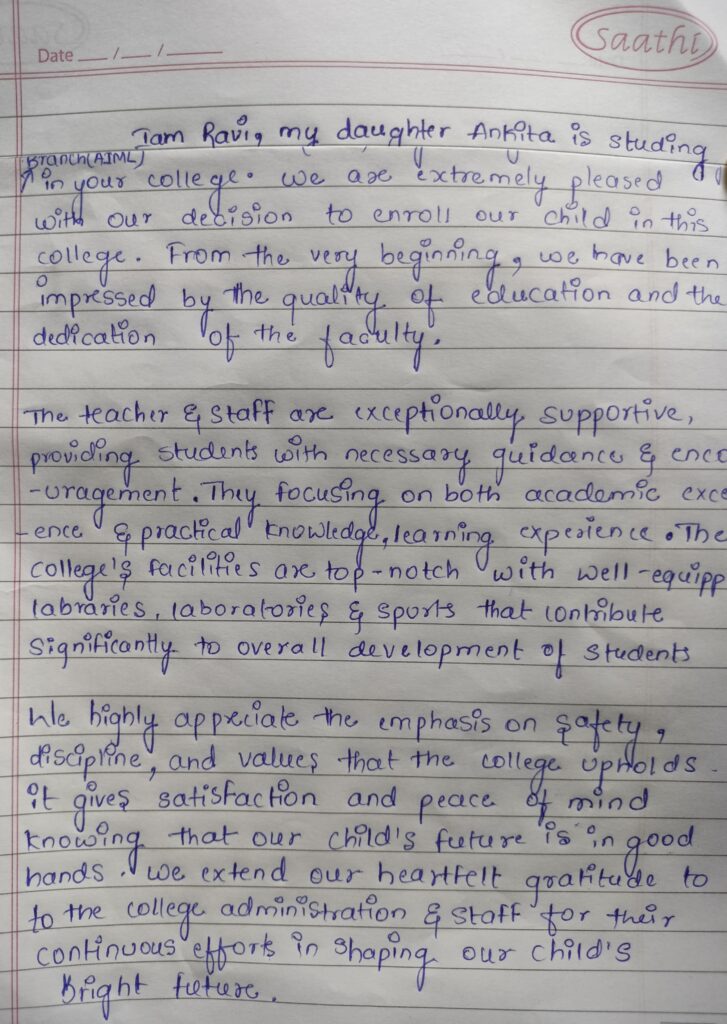 Date __/__/____
Saathi
Iam Ravi, my daughter Ankita is studing
Branch(AIML)
in your college. we are extremely pleased
with our decision to enroll our child in this
college. From the very beginning, we have been
impressed by the quality of education and the
dedication of the faculty.
The teacher & staff are exceptionally supportive,
providing students with necessary guidance & enco
-uragement. They focusing on both academic exce
-ence & practical knowledge, learning experience. The
college's facilities are top-notch with well-equipp
labraries, laboratories & sports that contribute
significantly to overall development of students
We highly appreciate the emphasis on safety,
discipline, and values that the college upholds.
it gives satisfaction and peace of mind
knowing that our child's future is in good
hands. we extend our heartfelt gratitude to
to the college administration & staff for their
continuous efforts in shaping our child's
Bright future.